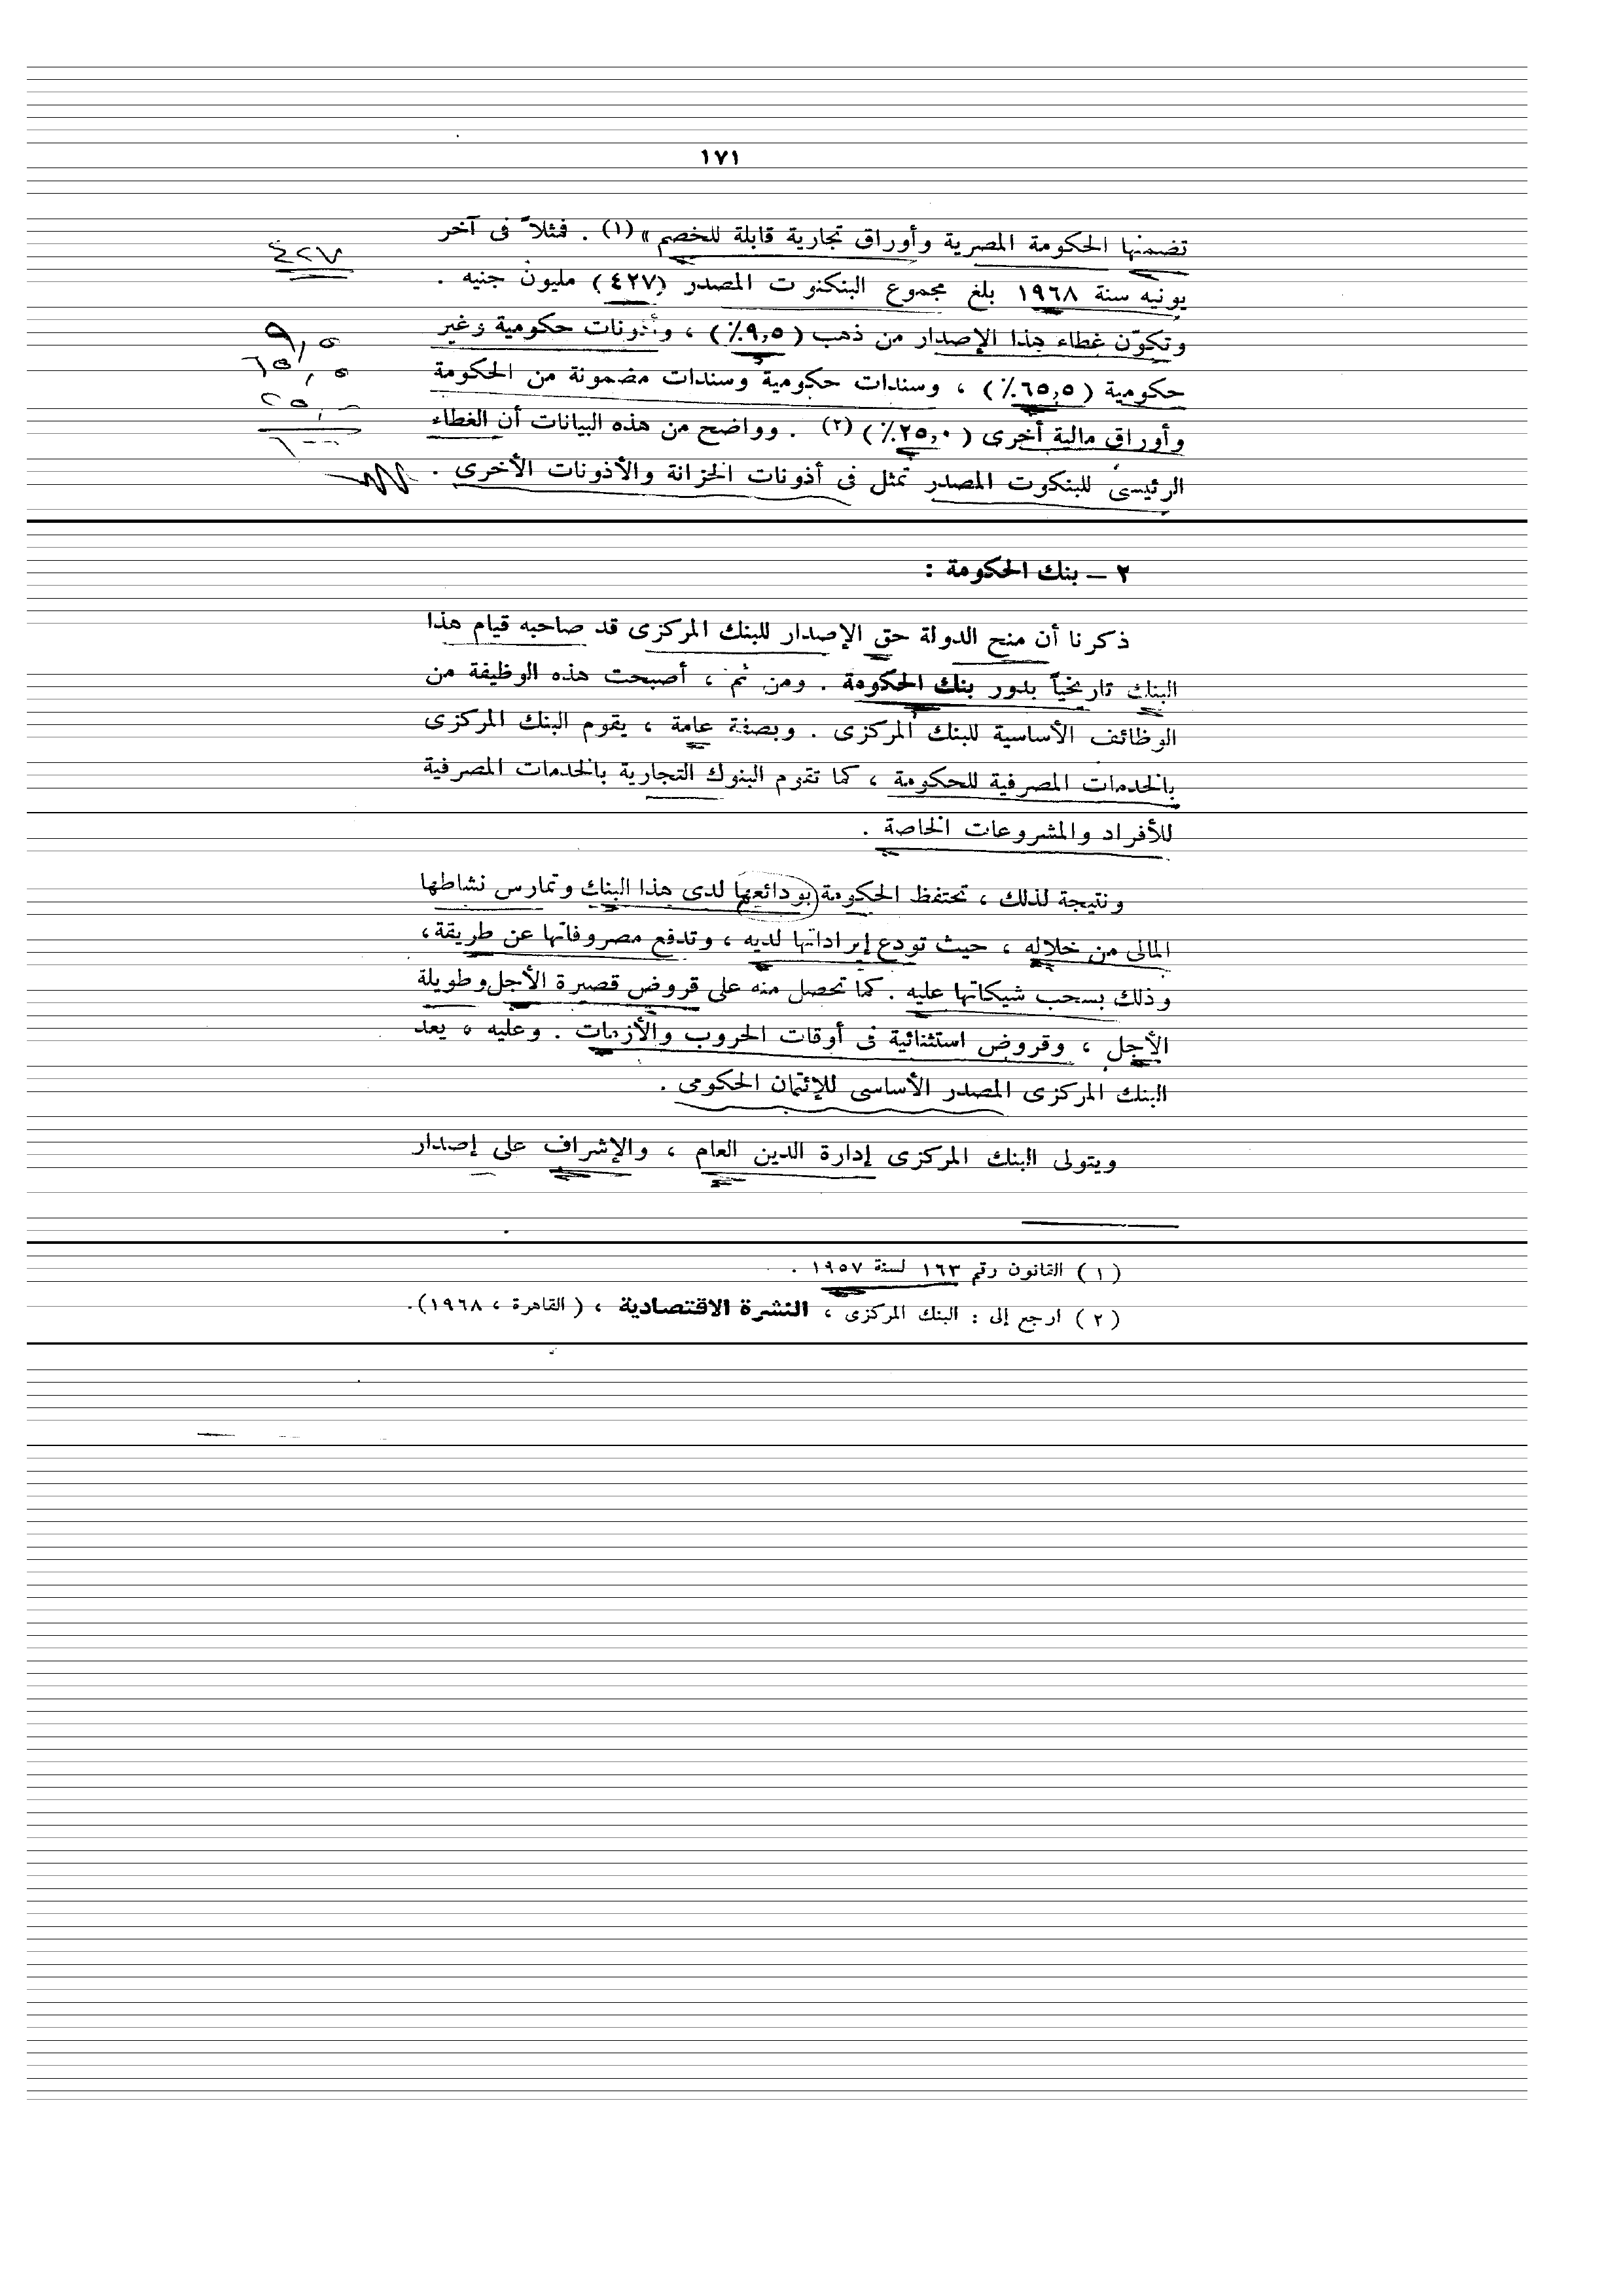 ١٧١
تضمنها الحكومة المصرية وأوراق تجارية قابلة للخصم » (١) . فمثلاً فى آخر
٤٢٧
يونيه سنة ١٩٦٨ بلغ مجموع البنكنوت المصدر (٤٢٧) مليون جنيه .
وتكوّن غطاء هذا الإصدار من ذهب (٩,٥٪) ، وأذونات حكومية وغير
٩,٥
حكومية (٦٥,٥٪) ، وسندات حكومية وسندات مضمونة من الحكومة
٦٥,٥
وأوراق مالية أخرى (٢٥,٠٪) (٢) . وواضح من هذه البيانات أن الغطاء
٢٥,٠
١٠٠
الرئيسى للبنكوت المصدر تمثل فى أذونات الخزانة والأذونات الأخرى .
٢ – بنك الحكومة :
ذكرنا أن منح الدولة حق الإصدار للبنك المركزى قد صاحبه قيام هذا
البنك تاريخياً بدور بنك الحكومة . ومن ثم ، أصبحت هذه الوظيفة من
الوظائف الأساسية للبنك المركزى . وبصفة عامة ، يقوم البنك المركزى
بالخدمات المصرفية للحكومة ، كما تقوم البنوك التجارية بالخدمات المصرفية
للأفراد والمشروعات الخاصة .
ونتيجة لذلك ، تحتفظ الحكومة بودائعها لدى هذا البنك وتمارس نشاطها
المالى من خلاله ، حيث تودع إيراداتها لديه ، وتدفع مصروفاتها عن طريقة ،
وذلك بسحب شيكاتها عليه . كما تحصل منه على قروض قصيرة الأجل وطويلة
الأجل ، وقروض استثنائية فى أوقات الحروب والأزمات . وعليه ، يعد
البنك المركزى المصدر الأساسى للإئتمان الحكومى .
ويتولى البنك المركزى إدارة الدين العام ، والإشراف على إصدار
(١) القانون رقم ١٦٣ لسنة ١٩٥٧ .
(٢) ارجع إلى : البنك المركزى ، النشرة الاقتصادية ، (القاهرة ، ١٩٦٨).